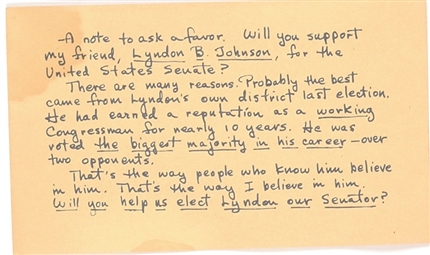 A note to ask a favor. Will you support
my friend, Lyndon B. Johnson, for the
United States Senate?
There are many reasons. Probably the best
came from Lyndon's own district last election.
He had earned a reputation as a working
Congressman for nearly 10 years. He was
voted the biggest majority in his career—over
two opponents.
That's the way people who know him believe
in him. That's the way I believe in him.
Will you help us elect Lyndon our Senator?